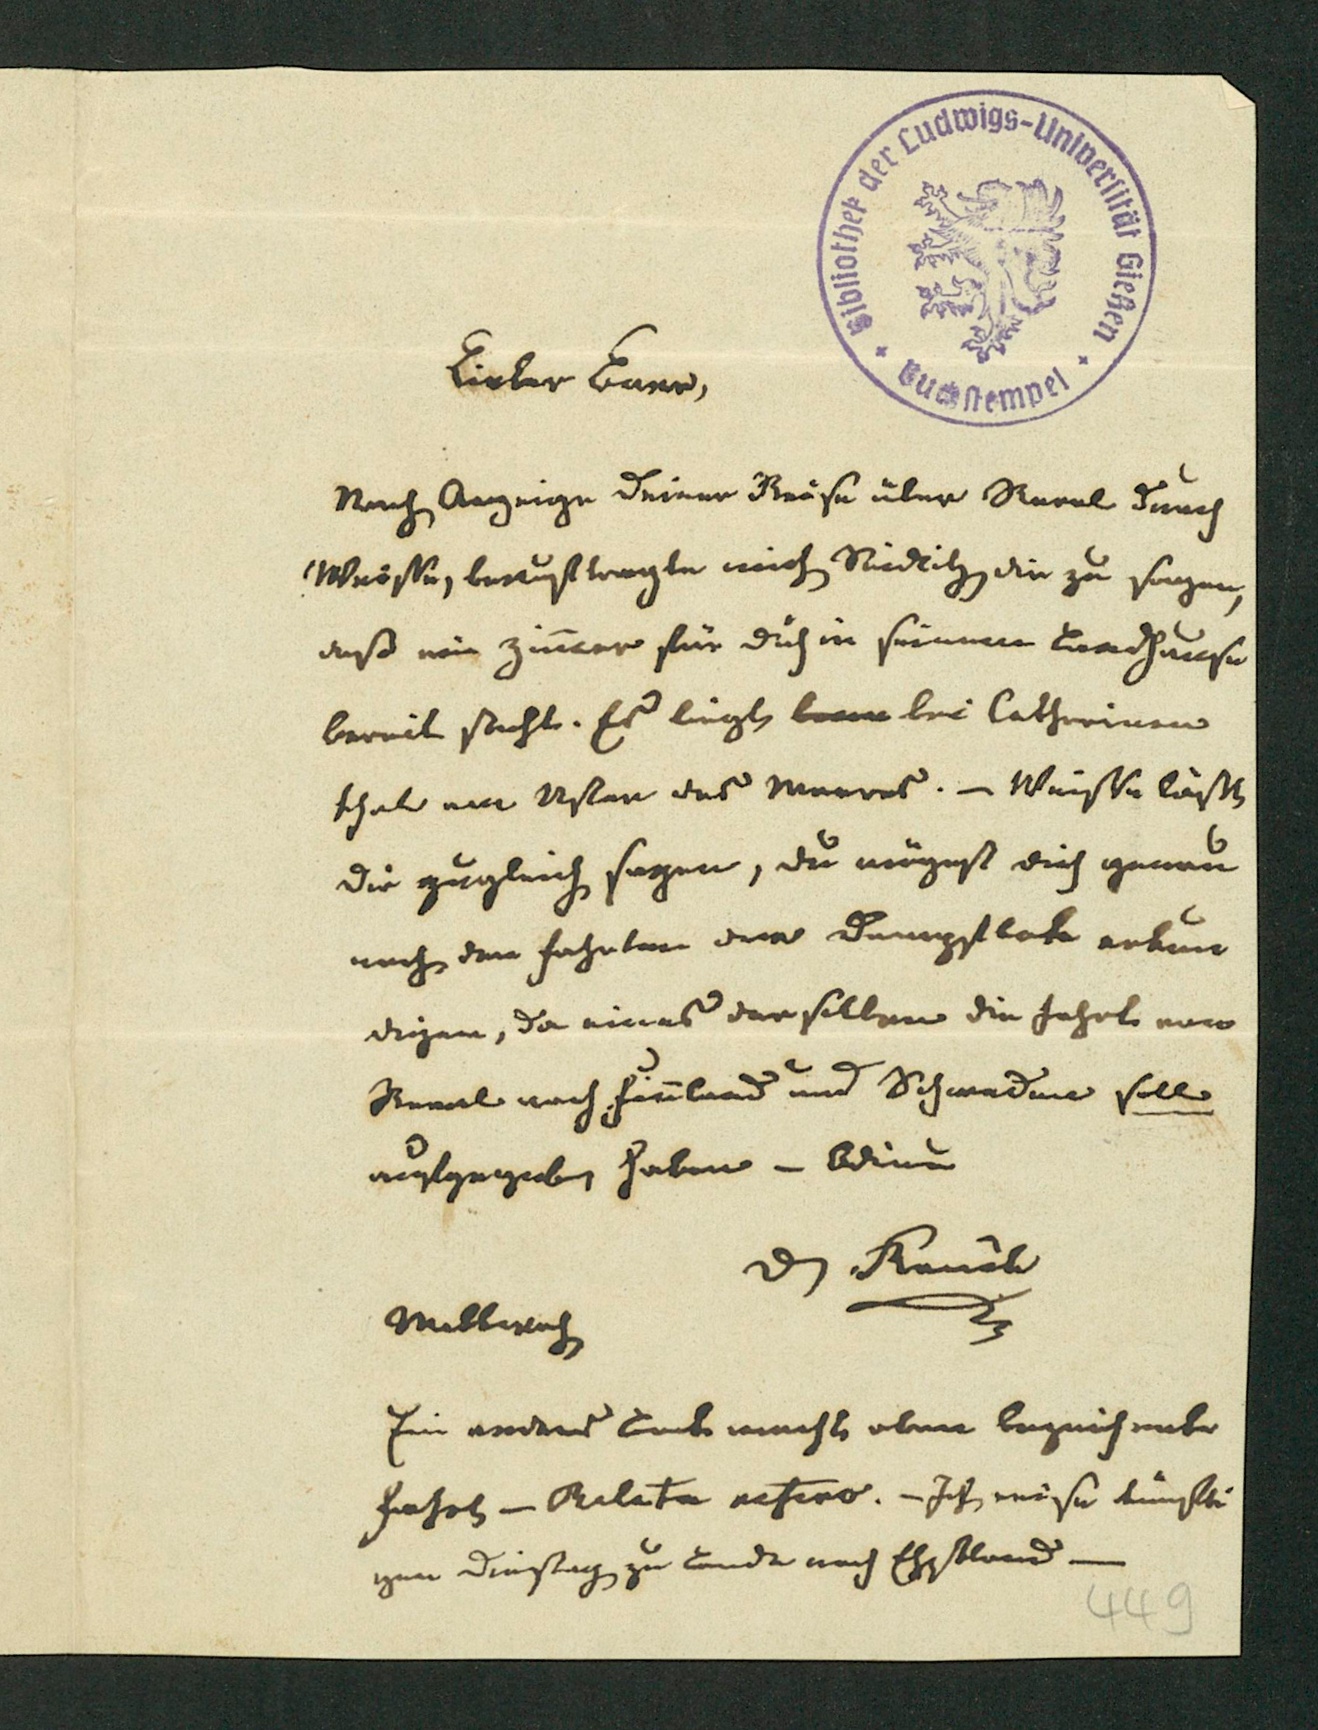 Bibliothek der Ludwigs-Universität Gießen
Buchstempel
Lieber Baer,
Nach Anzeige deiner Reise über Reval durch
Weisse, beauftragte mich Sidlitz dir zu sagen,
daß ein Zim̅er für dich in seinem Landhause
bereit steht. Es liegt bei Catherinen
thal am Ufer des Meeres. – Weisse läßt
dir zugleich sagen, du mögest dich genau
nach den Fahrten der Dampfbote erkun
digen, da eines derselben die Fahrt von
Reval nach Fin̅land und Schweden soll
aufgegeben haben – Adieu
D Rauch
Mittwoch
Ein anderes macht eben bezeichnete
Fahrt – Relata refero. – Ich reise künfti
gen Dienstag zu Lande nach Ehstland –
449